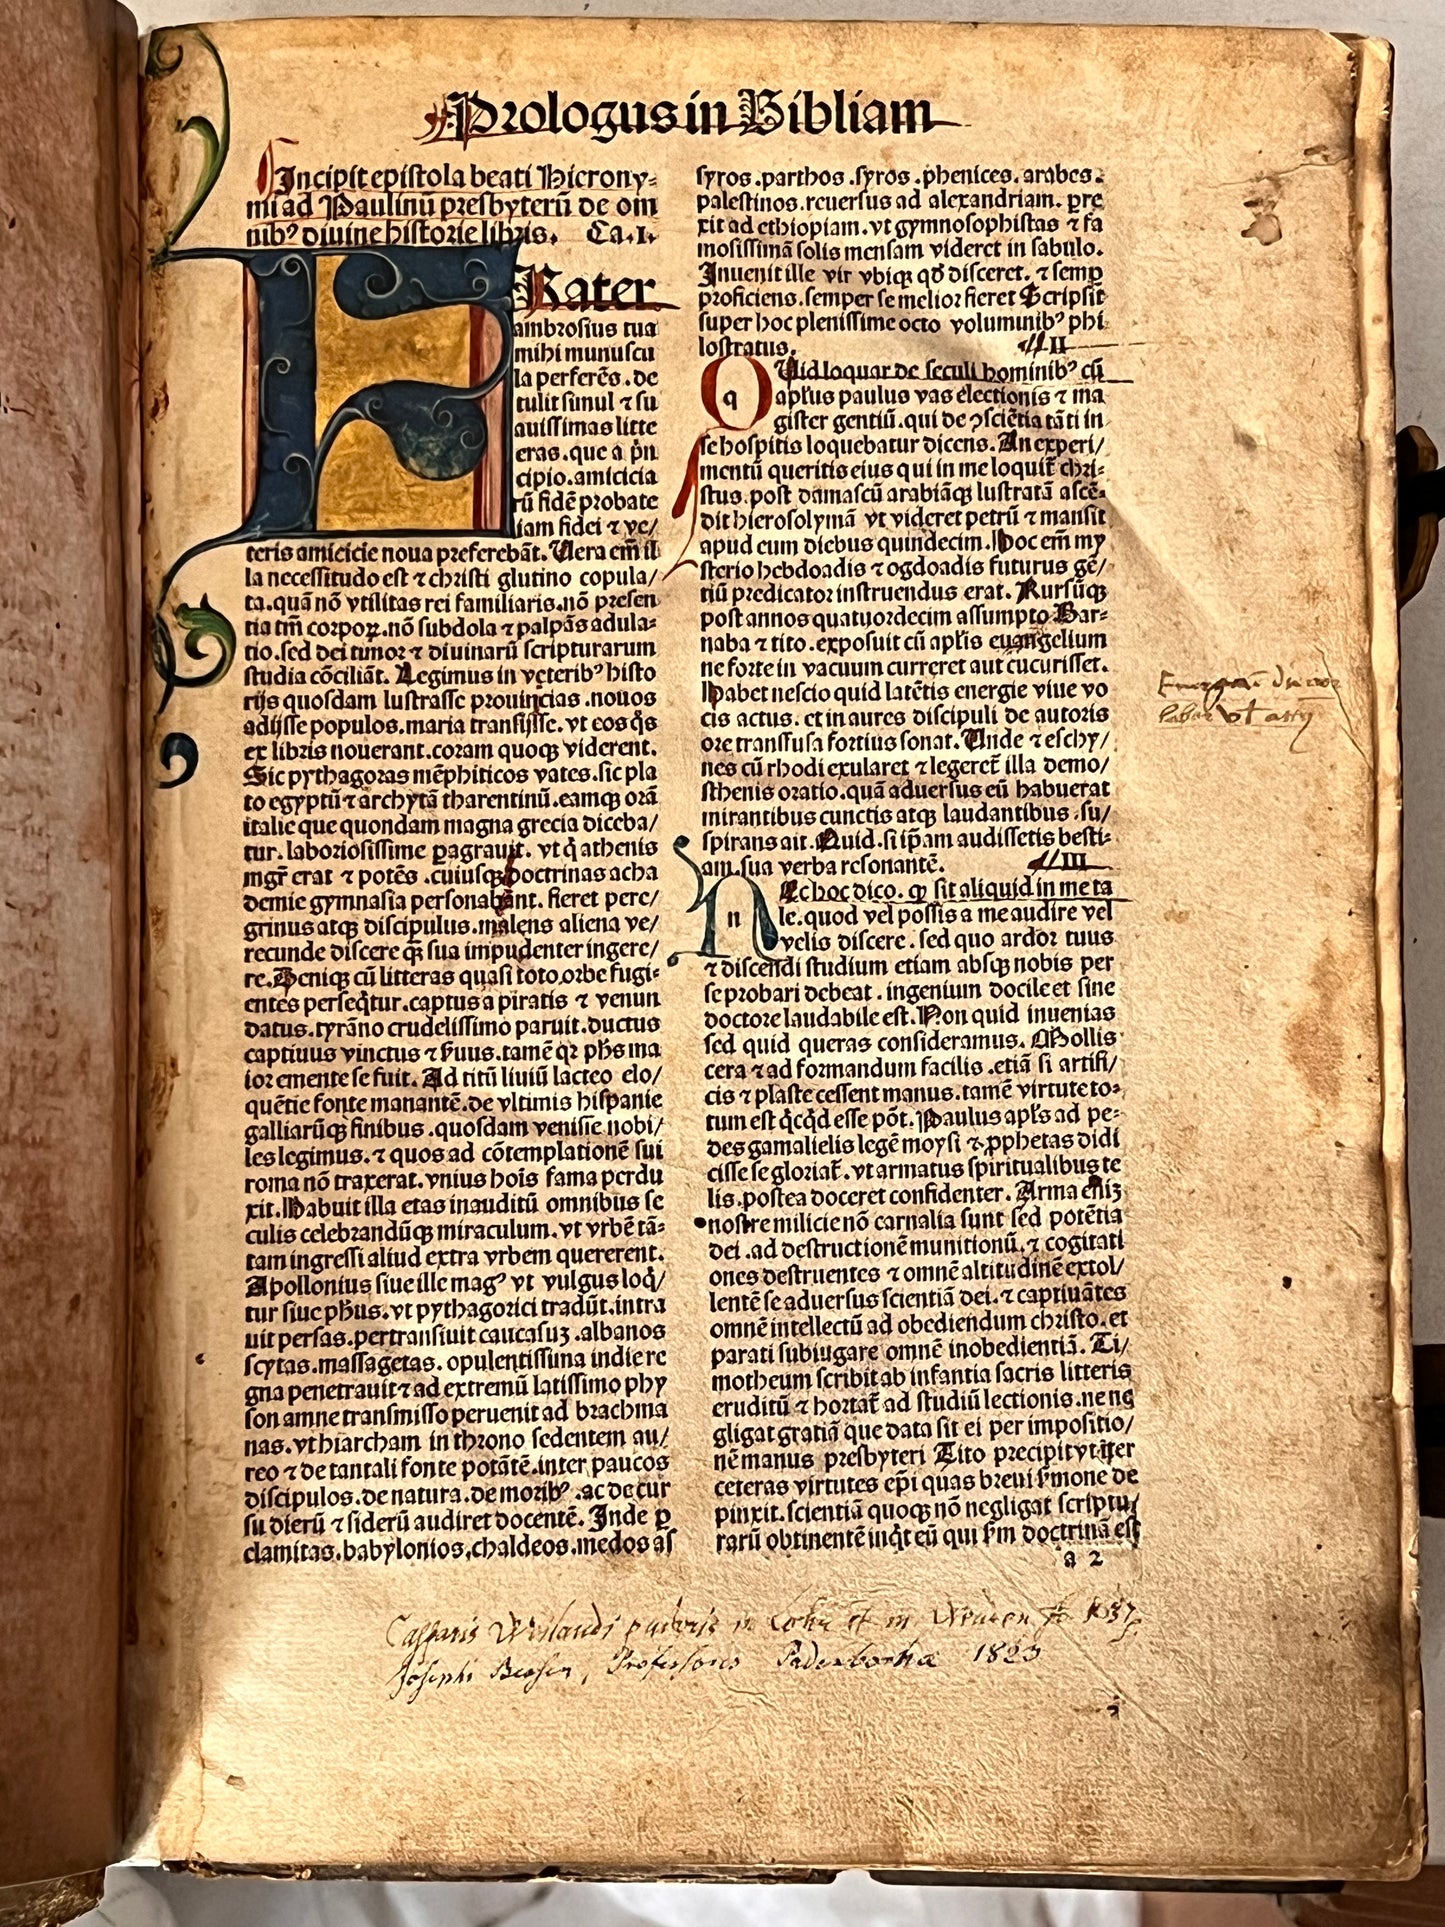 Prologus in Bibliam
Incipit epistola beati Hierony⸗
mi ad Paulinū presbyterū de om
nibꝰ diuine historie libris. Ca.I.
Frater
ambrosius tua
mihi munuscu
la perferēs.de
tulit simul ⁊ su
auissimas litte
eras.que a p̄n
cipio.amicicia
rū fidē probate
iam fidei ⁊ ve/
teris amicicie noua preferebāt. Uera em̄ il
la necessitudo est ⁊ christi glutino copula/
ta.quā nō vtilitas rei familiaris.nō presen
tia tm̄ corpoꝝ.nō subdola ⁊ palpās adula⸗
tio.sed dei timor ⁊ diuinarū scripturarum
studia cōciliāt. Legimus in veteribꝰ histo
rijs quosdam lustrasse prouincias.nouos
adijsse populos.maria transijsse.vt eos q̄s
ex libris nouerant.coram quoqꝫ viderent.
Sic pythagoras mēphiticos vates.sic pla
to egyptū ⁊ archytā tharentinū.eamqꝫ orā
italie que quondam magna grecia diceba/
tur. laboriosissime ꝑagrauit. vt q̄ athenis
mgr̄ erat ⁊ potēs .cuiusqꝫ doctrinas acha
demie gymnasia personabant. fieret pere/
grinus atqꝫ discipulus.malens aliena ve/
recunde discere qꝫ̄ sua impudenter ingere/
re.Deniqꝫ cū litteras quasi toto orbe fugi⸗
entes perseq̄tur.captus a piratis ⁊ venun
datus.tyrāno crudelissimo paruit.ductus
captiuus vinctus ⁊ s̄uus.tamē qꝛ ph̄s ma
ior emente se fuit. Ad titū liuiū lacteo elo/
quētie fonte manantē.de vltimis hispanie
galliarūqꝫ finibus.quosdam venisse nobi/
les legimus.⁊ quos ad cōtemplationē sui
roma nō traxerat.vnius hois̄ fama perdu
xit.Habuit illa etas inauditū omnibus se
culis celebrandūqꝫ miraculum.vt vrbē tā⸗
tam ingressi aliud extra vrbem quererent.
Apollonius siue ille magꝰ vt vulgus loq̄/
tur siue ph̄us.vt pythagorici tradūt.intra
uit persas.pertransiuit caucasuꝫ.albanos
scytas.massagetas. opulentissima indie re
gna penetrauit ⁊ ad extremū latissimo phy
son amne transmisso peruenit ad brachma
nas.vt hiarcham in throno sedentem au/
reo ⁊ de tantali fonte potātē.inter paucos
discipulos.de natura.de moribꝰ .ac de cur
su dierū ⁊ siderū audiret docentē. Inde ꝑ
elamitas.babylonios.chaldeos.medos as
syros .parthos .syros .phenices. arabes.
palestinos.reuersus ad alexandriam. ꝑre
xit ad ethiopiam.vt gymnosophistas ⁊ fa
mosissimā solis mensam videret in sabulo.
Inuenit ille vir vbiqꝫ qd̄ disceret. ⁊ semꝑ
proficiens.semper se melior fieret Scripsit
super hoc plenissime octo voluminibꝰ phi
lostratus. II
q Uid loquar de seculi hominibꝰ cū
apl̄us paulus vas electionis ⁊ ma
gister gentiū.qui de ꝯsciētia tāti in
se hospitis loquebatur dicens. An experi/
mentū queritis eius qui in me loquit̄ chri⸗
stus.post damascū arabiāqꝫ lustratā ascē⸗
dit hierosolymā vt videret petrū ⁊ mansit
apud eum diebus quindecim.Hoc em̄ my
sterio hebdoadis ⁊ ogdoadis futurus gē/
tiū predicator instruendus erat. Rursūqꝫ
post annos quatuordecim assumpto Bar⸗
naba ⁊ tito.exposuit cū apl̄is euangelium
ne forte in vacuum curreret aut cucurisset.
Habet nescio quid latētis energie viue vo
cis actus. et in aures discipuli de autoris
ore transfusa fortius sonat. Unde ⁊ eschy/
nes cū rhodi exularet ⁊ legeret̄ illa demo/
sthenis oratio.quā aduersus eū habuerat
mirantibus cunctis atqꝫ laudantibus.su/
spirans ait. Quid.si ip̄am audissetis besti⸗
am.sua verba resonantē. III
n Ec hoc dico. qꝫ sit aliquid in me ta
le.quod vel possis a me audire vel
velis discere. sed quo ardor tuus
⁊ discendi studium etiam absqꝫ nobis per
se probari debeat. ingenium docile et sine
doctore laudabile est. Non quid inuenias
sed quid queras consideramus. Mollis
cera ⁊ ad formandum facilis .etiā si artifi/
cis ⁊ plaste cessent manus.tamē virtute to⸗
tum est q̄cq̄d esse pōt. Paulus apl̄s ad pe⸗
des gamalielis legē moysi ⁊ ꝓphetas didi
cisse se gloriat̄. vt armatus spiritualibus te
lis.postea doceret confidenter. Arma eniꝫ
nostre milicie nō carnalia sunt sed potētia
dei .ad destructionē munitionū.⁊ cogitati
ones destruentes ⁊ omnē altitudinē extol/
lentē se aduersus scientiā dei.⁊ captiuātes
omnē intellectū ad obediendum christo.et
parati subiugare omnē inobedientiā. Ti/
motheum scribit ab infantia sacris litteris
eruditū ⁊ hortat̄ ad studiū lectionis.ne ne
gligat gratiā que data sit ei per impositio/
nē manus presbyteri Tito precipit vt iter
ceteras virtutes ep̄i quas breui s̄mone de
pinxit.scientiā quoqꝫ nō negligat scriptu/
rarū obtinentē inq̄t eū qui s̄m doctrinā est
a 2
Casparis Wilandi in et in 1657
Josephi Bessen, Professoris Paderbornae 1823